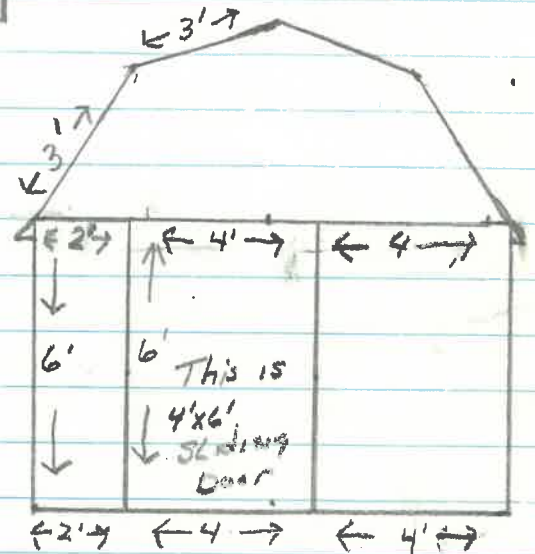 3'
3'
2' 4' 4
6' 6' This is
4'x6'
Sliding
Door
2' 4 4'